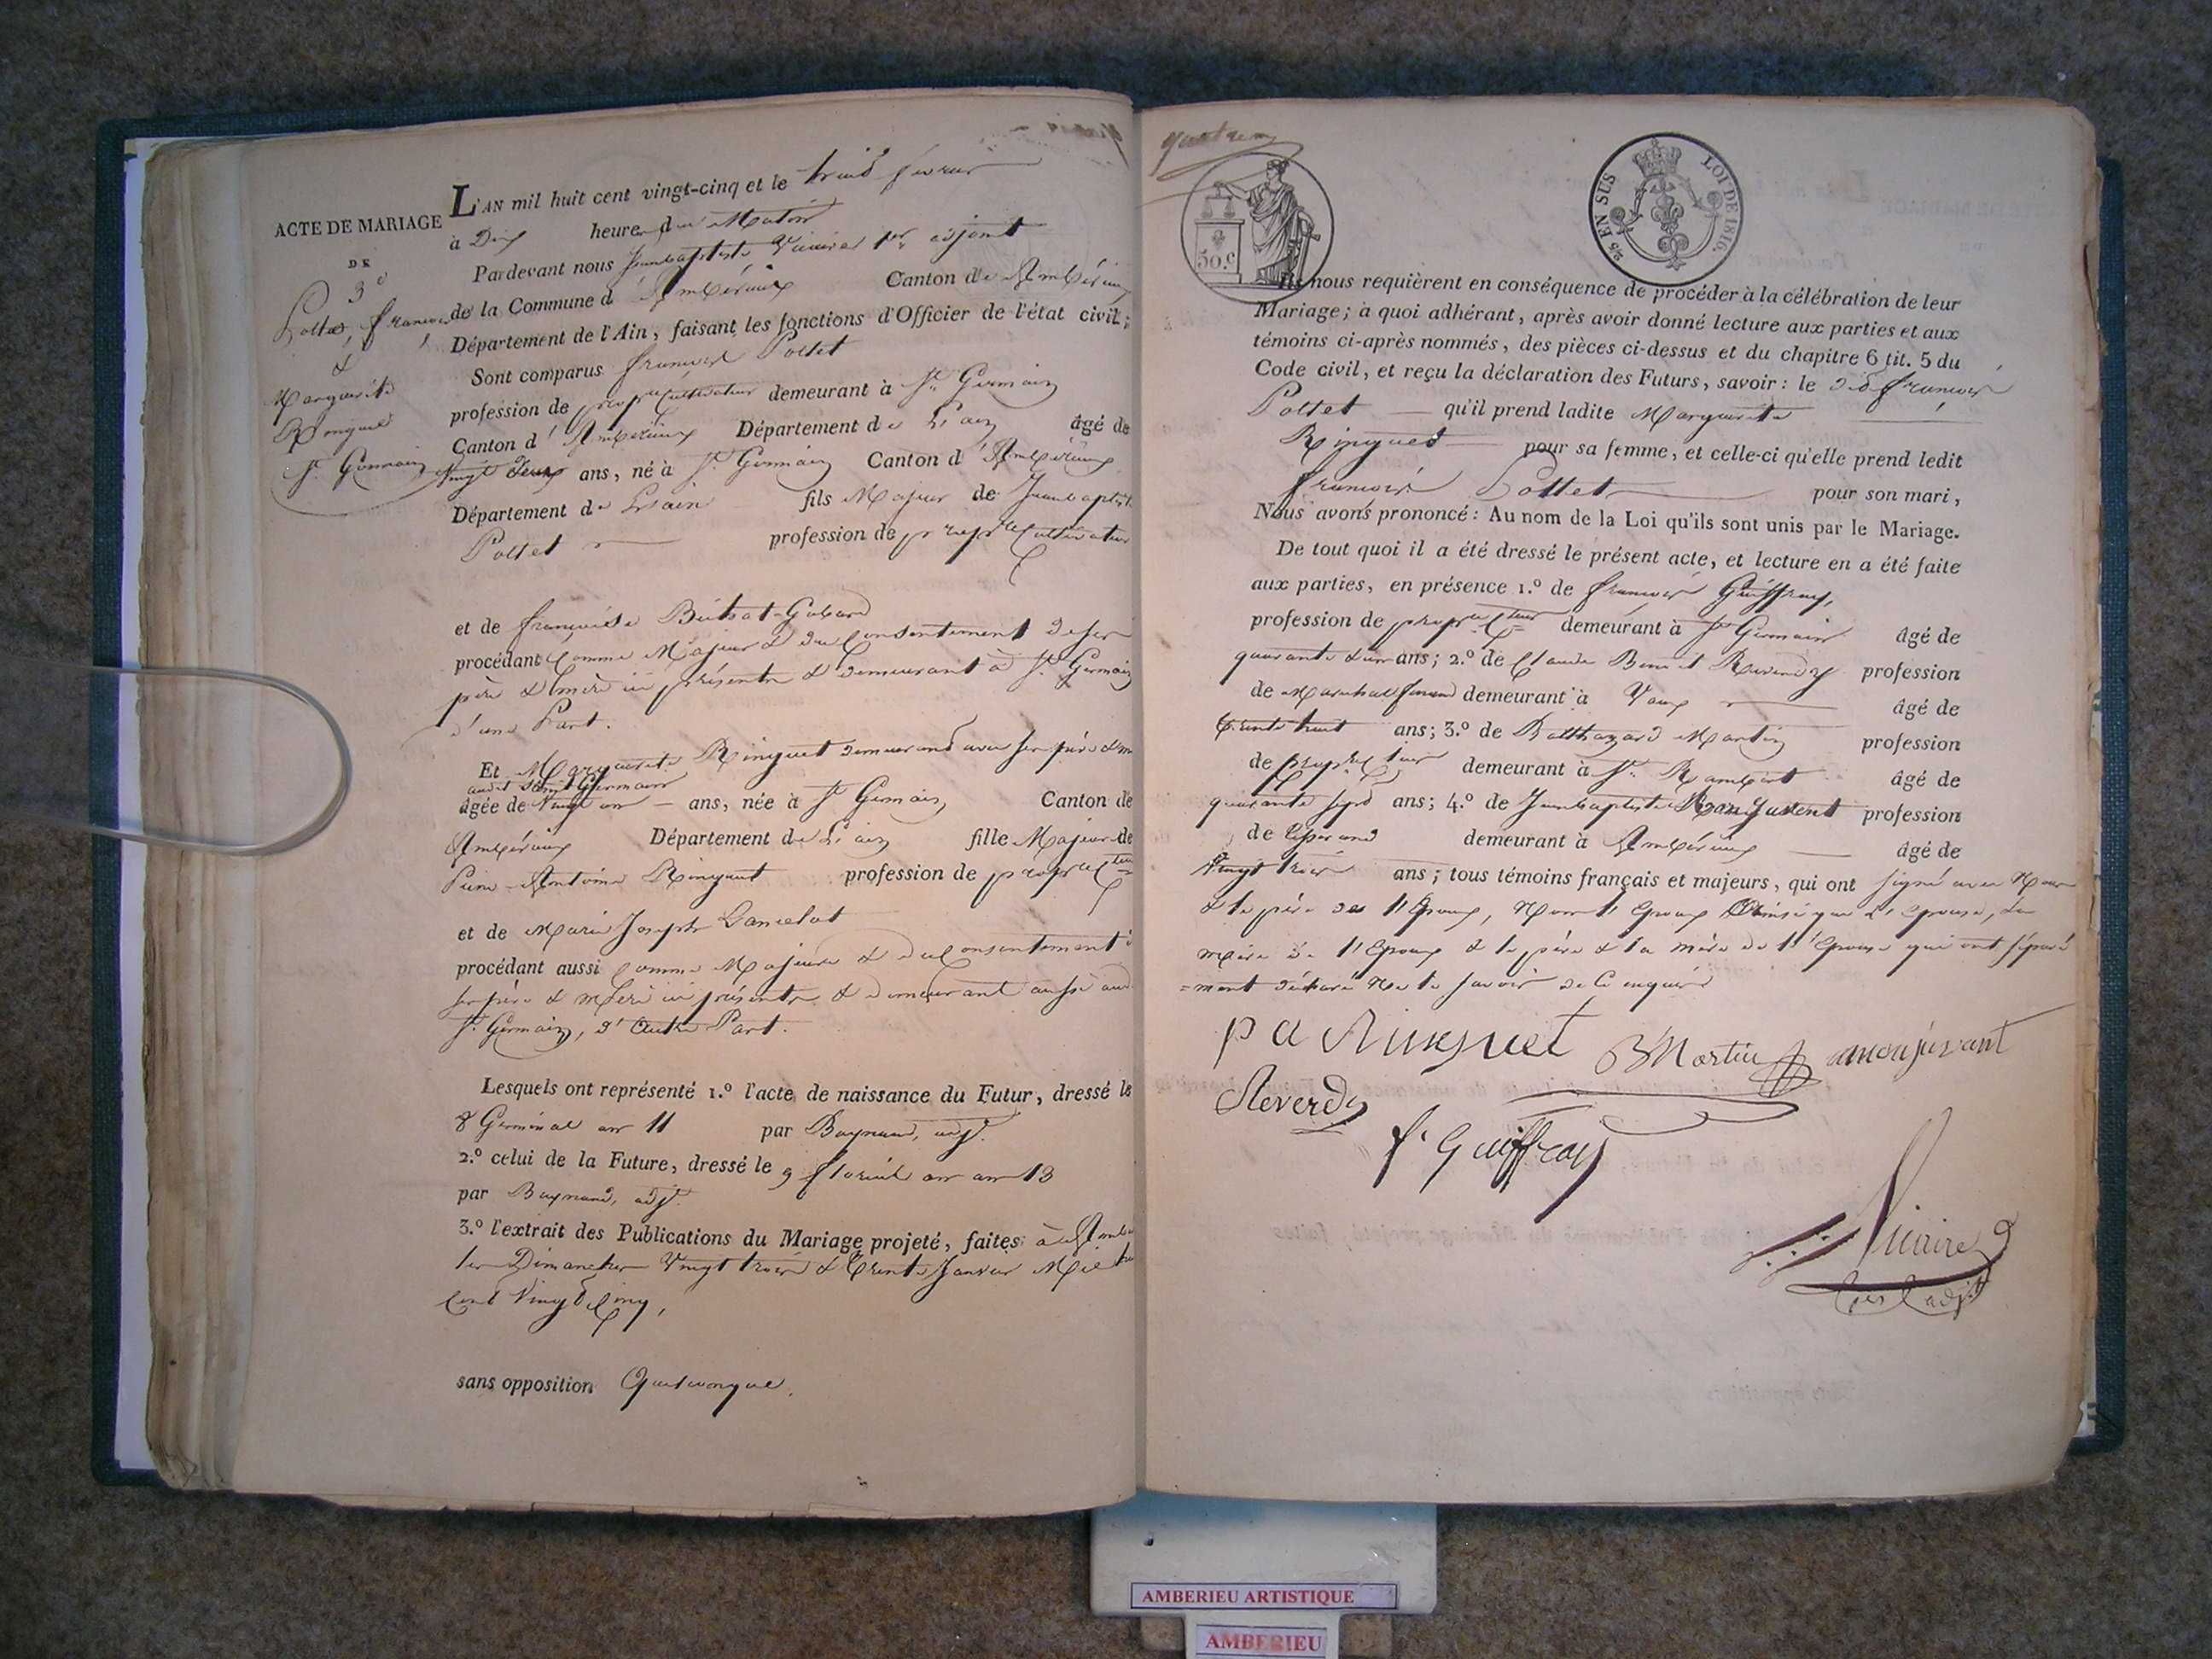 ACTE DE MARIAGE
DE
3e
Pottet, françois
&
Marguerite
Ringuet
St. Germain
L'AN mil huit cent vingt-cinq et le trois février
à Dix heures du Matin
Pardevant nous Jeanbaptiste Vicaire 1er adjoint
de la Commune d'Ambérieux Canton de Ambérieux
Département de l'Ain, faisant les fonctions d'Officier de l'état civil;
Sont comparus françois Pottet
profession de propre cultivateur demeurant à St. Germain
Canton d'Ambérieux Département de L'ain âgé de
Vingt deux ans, né à St. Germain Canton d'Ambérieux
Département de L'ain fils Majeur de Jeanbaptiste
Pottet profession de propre Cultivateur
et de françoise Gabard
procédant Comme Majeur & du Consentement de ses
père & mère ici présents & demeurant à St. Germain
d'une Part.
Et Marguerite Ringuet demeurant avec ses père &
audit Saint Germain
âgée de Vingt un ans, née à St. Germain Canton de
Ambérieux Département de L'ain fille Majeure de
Pierre-Antoine Ringuet profession de propre Cteur
et de Marie Joseph Lancelot
procédant aussi Comme Majeure & du Consentement de
ses père & mère ici présents & demeurant aussi aud
St. Germain, d'Autre Part.
Lesquels ont représenté 1.º l'acte de naissance du Futur, dressé le
8 Germinal an 11 par adjt.
2.º celui de la Future, dressé le 9 floréal an an 13
par adjt.
3.º l'extrait des Publications du Mariage projeté, faites à
les Dimanches Vingt trois & Trente Janvier Mil
Cent Vingt Cinq,
sans opposition Quelconque.
30.c
25 EN SUS LOI DE 1816.
Ils nous requièrent en conséquence de procéder à la célébration de leur
Mariage; à quoi adhérant, après avoir donné lecture aux parties et aux
témoins ci-après nommés, des pièces ci-dessus et du chapitre 6 tit. 5 du
Code civil, et reçu la déclaration des Futurs, savoir: le dit françois
Pottet qu'il prend ladite Marguerite
Ringuet pour sa femme, et celle-ci qu'elle prend ledit
françois Pottet pour son mari,
Nous avons prononcé: Au nom de la Loi qu'ils sont unis par le Mariage.
De tout quoi il a été dressé le présent acte, et lecture en a été faite
aux parties, en présence 1.º de françois Guiffray,
profession de propre Cteur demeurant à St Germain âgé de
quarante & un ans; 2.º de Claude Benoit Reverdy profession
de Marechal ferrand demeurant à Vaux âgé de
trente huit ans; 3.º de Balthazard Martin profession
de propre Cteur demeurant à St. Rambert âgé de
quarante sept ans; 4.º de Jeanbaptiste Monjuvent profession
de demeurant à Ambérieux âgé de
Vingt trois ans; tous témoins français et majeurs, qui ont signé avec Nous
& le père de l'Epouse, Non l'Epoux Ainsi que L'epouse, la
mère de l'Epoux & le père & la mère de l'Epouse qui ont séparé
=ment déclaré Ne le savoir de Ce enquis
p a Ringuet BMartin monjuvant
Reverdy
f. Guiffray
Vicaire
1er adjt
AMBERIEU ARTISTIQUE
AMBERIEU